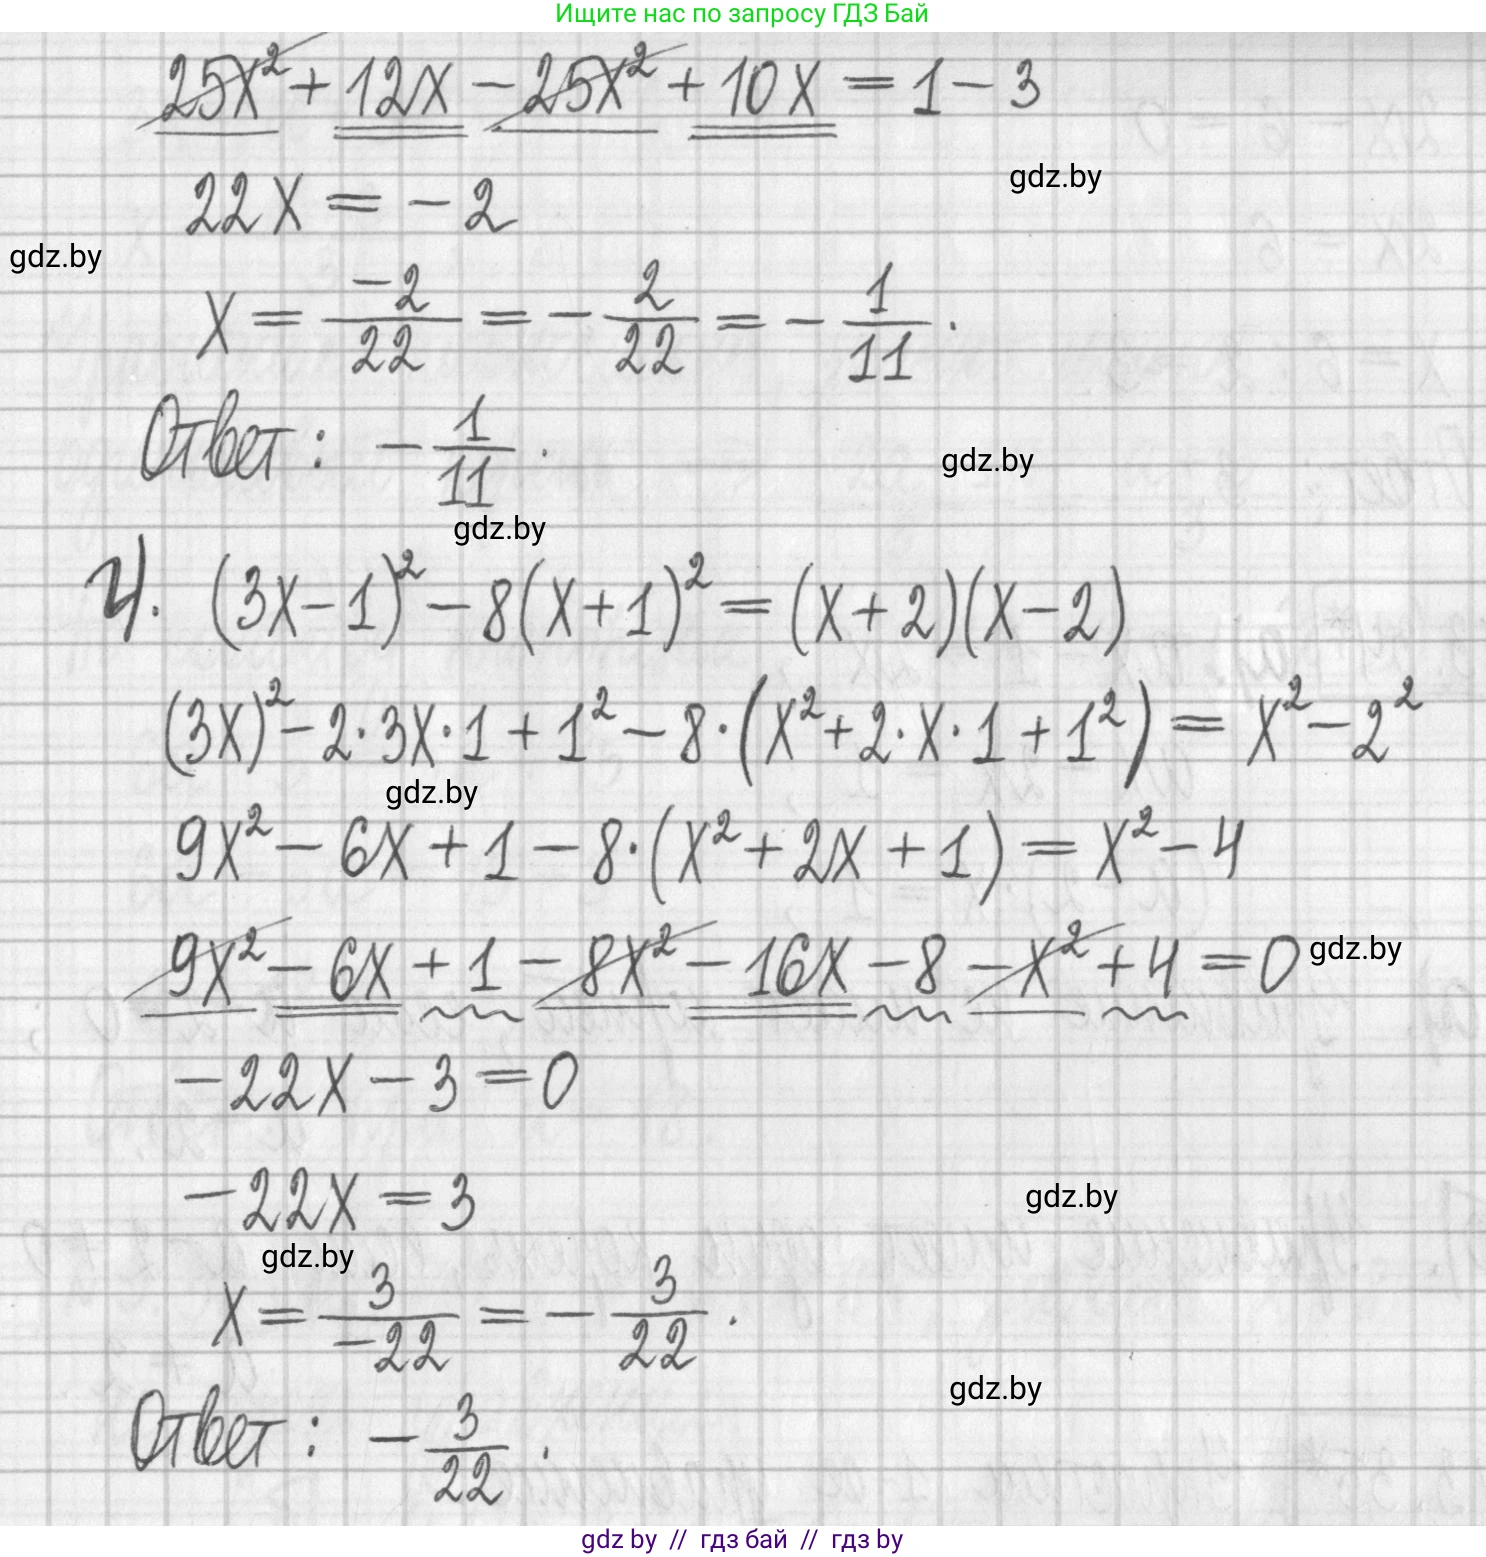 Ищите нас по запросу ГДЗ Бай
25x² + 12x − 25x² + 10x = 1 − 3
gdz.by
22x = −2
gdz.by
x = −2/22 = −2/22 = −1/11.
Ответ: −1/11.
gdz.by
gdz.by
4. (3x−1)² − 8(x+1)² = (x+2)(x−2)
(3x)² − 2·3x·1 + 1² − 8·(x² + 2·x·1 + 1²) = x² − 2²
gdz.by
9x² − 6x + 1 − 8·(x² + 2x + 1) = x² − 4
9x² − 6x + 1 − 8x² − 16x − 8 − x² + 4 = 0
gdz.by
−22x − 3 = 0
−22x = 3
gdz.by
gdz.by
x = 3/−22 = −3/22.
gdz.by
Ответ: −3/22.
gdz by // гдз бай // гдз by